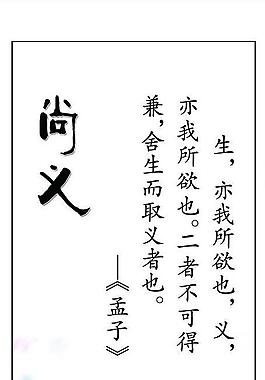 生，亦我所欲也，义，
亦我所欲也。二者不可得
兼，舍生而取义者也。
—《孟子》
尚义